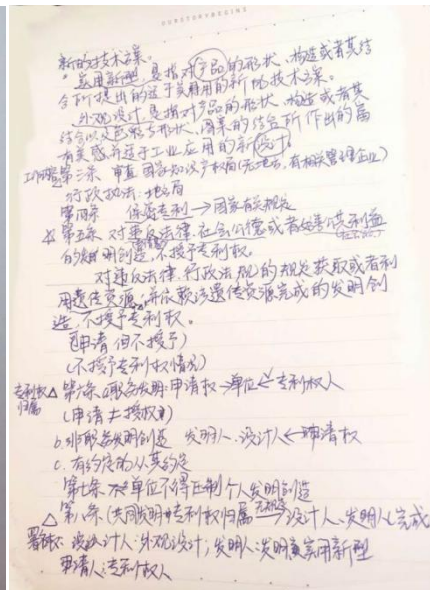 DONSTORYBEGINS
新的技术方案。
"实用新型,是指对产品的形状、构造或者其结
合所提出的适于实用的新的技术方案。
"外观设计,是指对产品的形状、构造或者其
结合以及色彩与形状、图案的结合所作出的富
有美感,并适于工业应用的新设计。
第三条 审查:国家知识产权局(无地方,有相关管理企业)
行政执法:地方局
第四条 保密专利→国家有关规定
☆第五条 对违反法律、社会公德或者妨害公共利益
的发明创造,不授予专利权。
对违反法律、行政法规的规定获取或者利
用遗传资源,并依赖该遗传资源完成的发明创
造,不授予专利权。
(申请但不授予)
(不授予专利权情况)
专利权归属 △ 第六条 a职务发明:申请权→单位←专利权人
(申请≠授权)
b.非职务发明创造 发明人、设计人←申请权
c.有约定的从其约定
第七条 单位不得压制个人发明创造
△ 第八条(共同发明专利权归属 无约定→设计人、发明人(完成
设计人:外观设计;发明人:发明与实用新型
申请人:专利权人